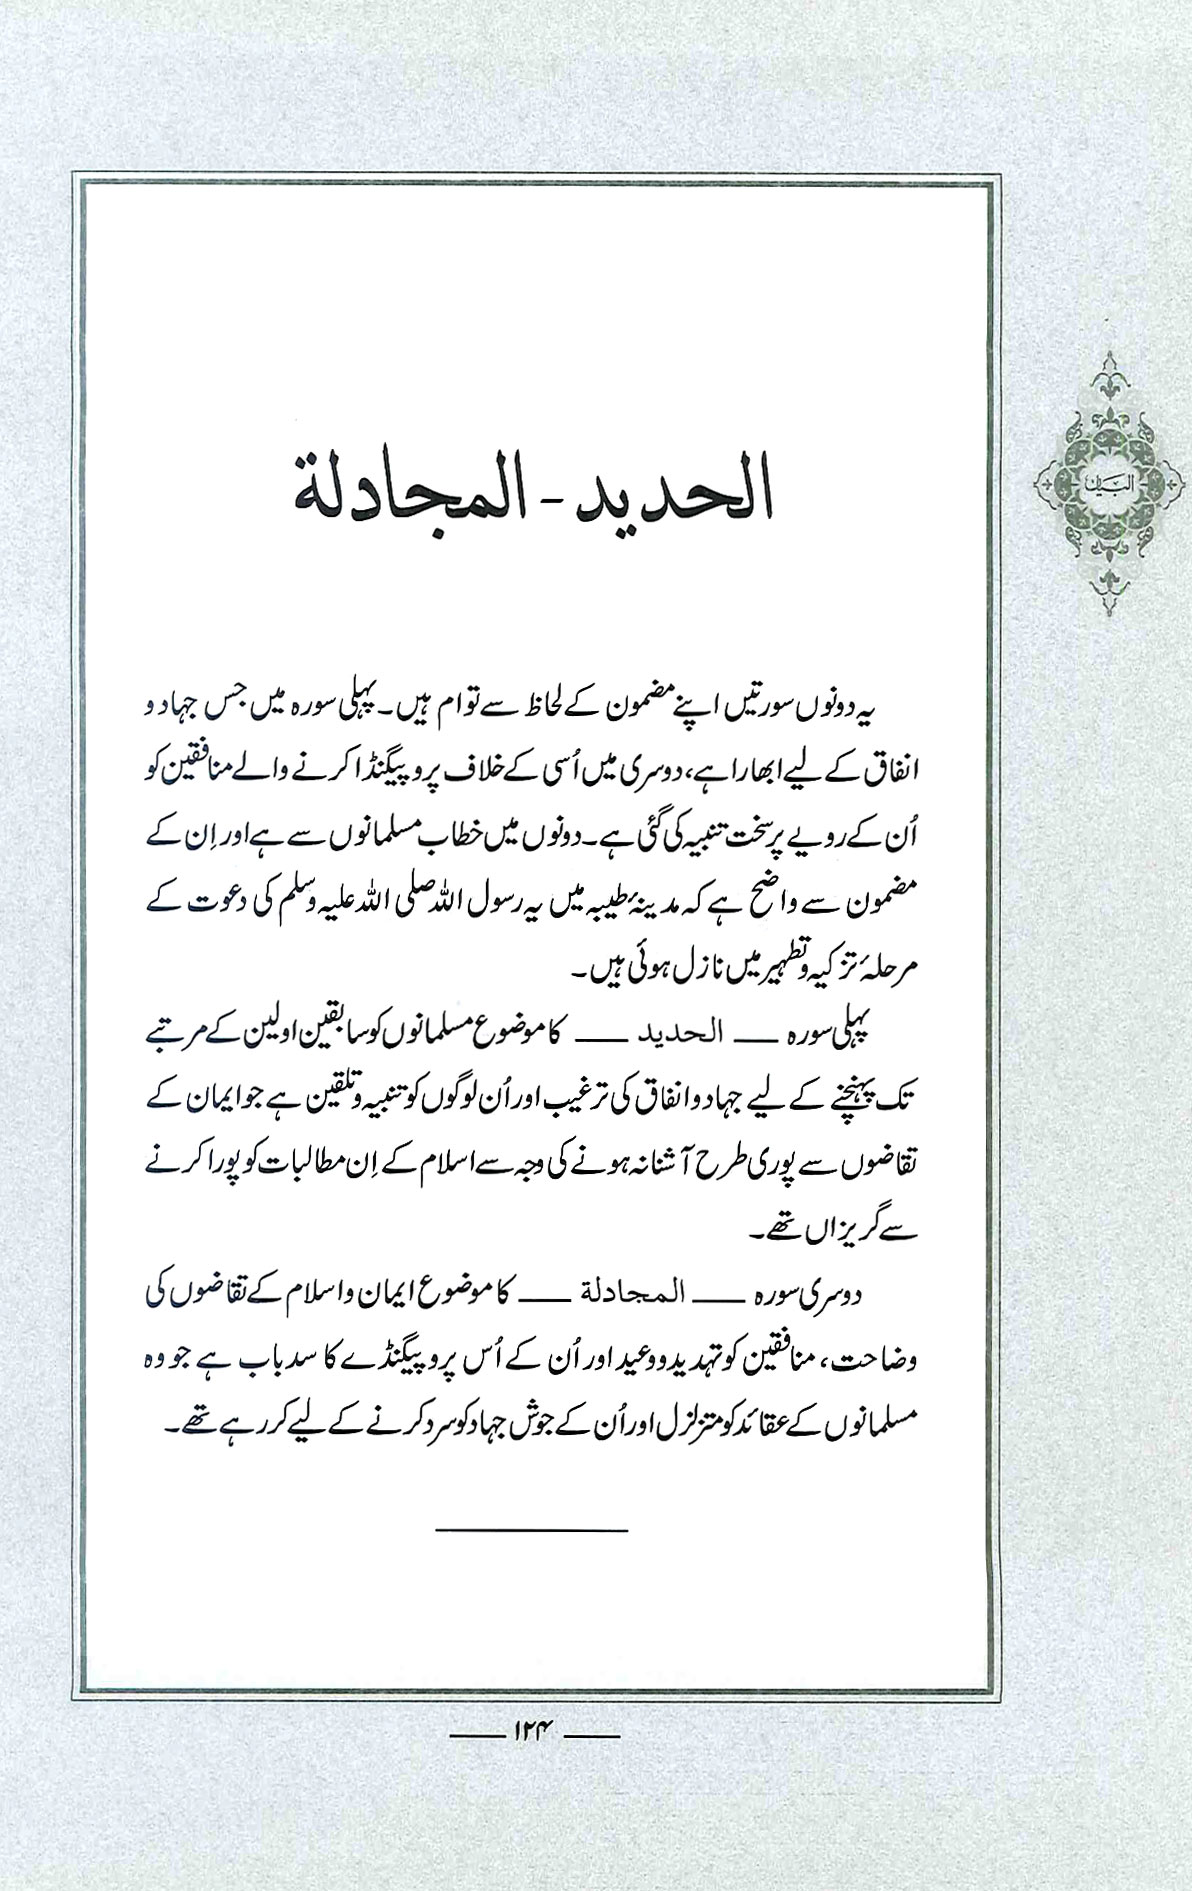 الحديد - المجادلة
البیان
یہ دونوں سورتیں اپنے مضمون کے لحاظ سے توام ہیں۔ پہلی سورہ میں جس جہاد و
انفاق کے لیے ابھارا ہے، دوسری میں اُسی کے خلاف پروپیگنڈا کرنے والے منافقین کو
اُن کے رویے پر سخت تنبیہ کی گئی ہے۔ دونوں میں خطاب مسلمانوں سے ہے اور اِن کے
مضمون سے واضح ہے کہ مدینۂ طیبہ میں یہ رسول اللہ صلی اللہ علیہ وسلم کی دعوت کے
مرحلۂ تزکیہ و تطہیر میں نازل ہوئی ہیں۔
پہلی سورہ ـــــ الحديد ـــــ کا موضوع مسلمانوں کو سابقین اولین کے مرتبے
تک پہنچنے کے لیے جہاد و انفاق کی ترغیب اور اُن لوگوں کو تنبیہ و تلقین ہے جو ایمان کے
تقاضوں سے پوری طرح آشنا نہ ہونے کی وجہ سے اسلام کے اِن مطالبات کو پورا کرنے
سے گریزاں تھے۔
دوسری سورہ ـــــ المجادلة ـــــ کا موضوع ایمان و اسلام کے تقاضوں کی
وضاحت، منافقین کو تہدید و وعید اور اُن کے اُس پروپیگنڈے کا سدباب ہے جو وہ
مسلمانوں کے عقائد کو متزلزل اور اُن کے جوش جہاد کو سرد کرنے کے لیے کر رہے تھے۔
ـــــ ۱۲۴ ـــــ